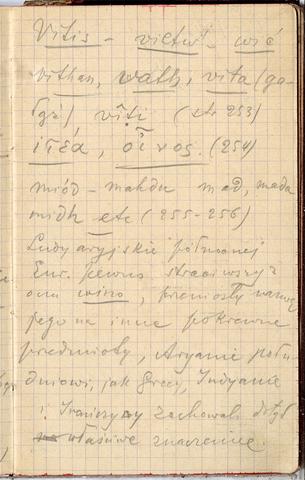 Vitis – vietwᵗ wić
vithan, wath, vita (ga-
łąź) vîṭi (str 253)
ἰτέα, οἶνος. (254)
miód – mahdu mad, mada
midh etc (255–256)
Ludy aryjskie północnej
Eur. pewno straciwszy z
oczu wino, przeniosły nazwę
jego na inne pokrewne
przedmioty, Aryanie połu-
dniowi, jak Grecy, Indyanie
i Irańczycy zachowali dotąd
właściwe znaczenie.